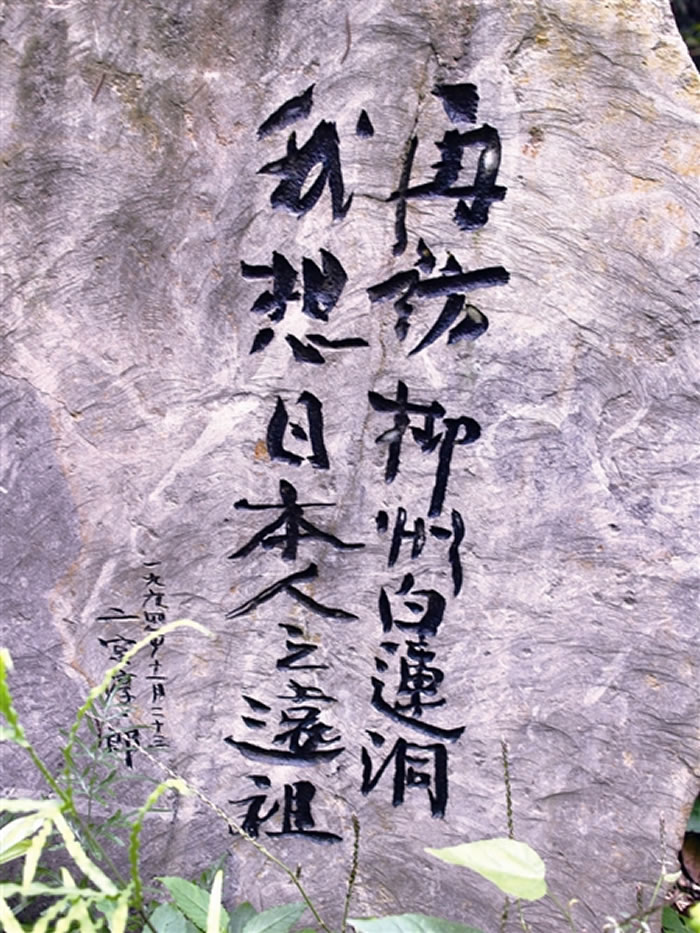 再访柳州白蓮洞
我想日本人之遠祖
一九九四年十一月二十三
二宮淳一郎